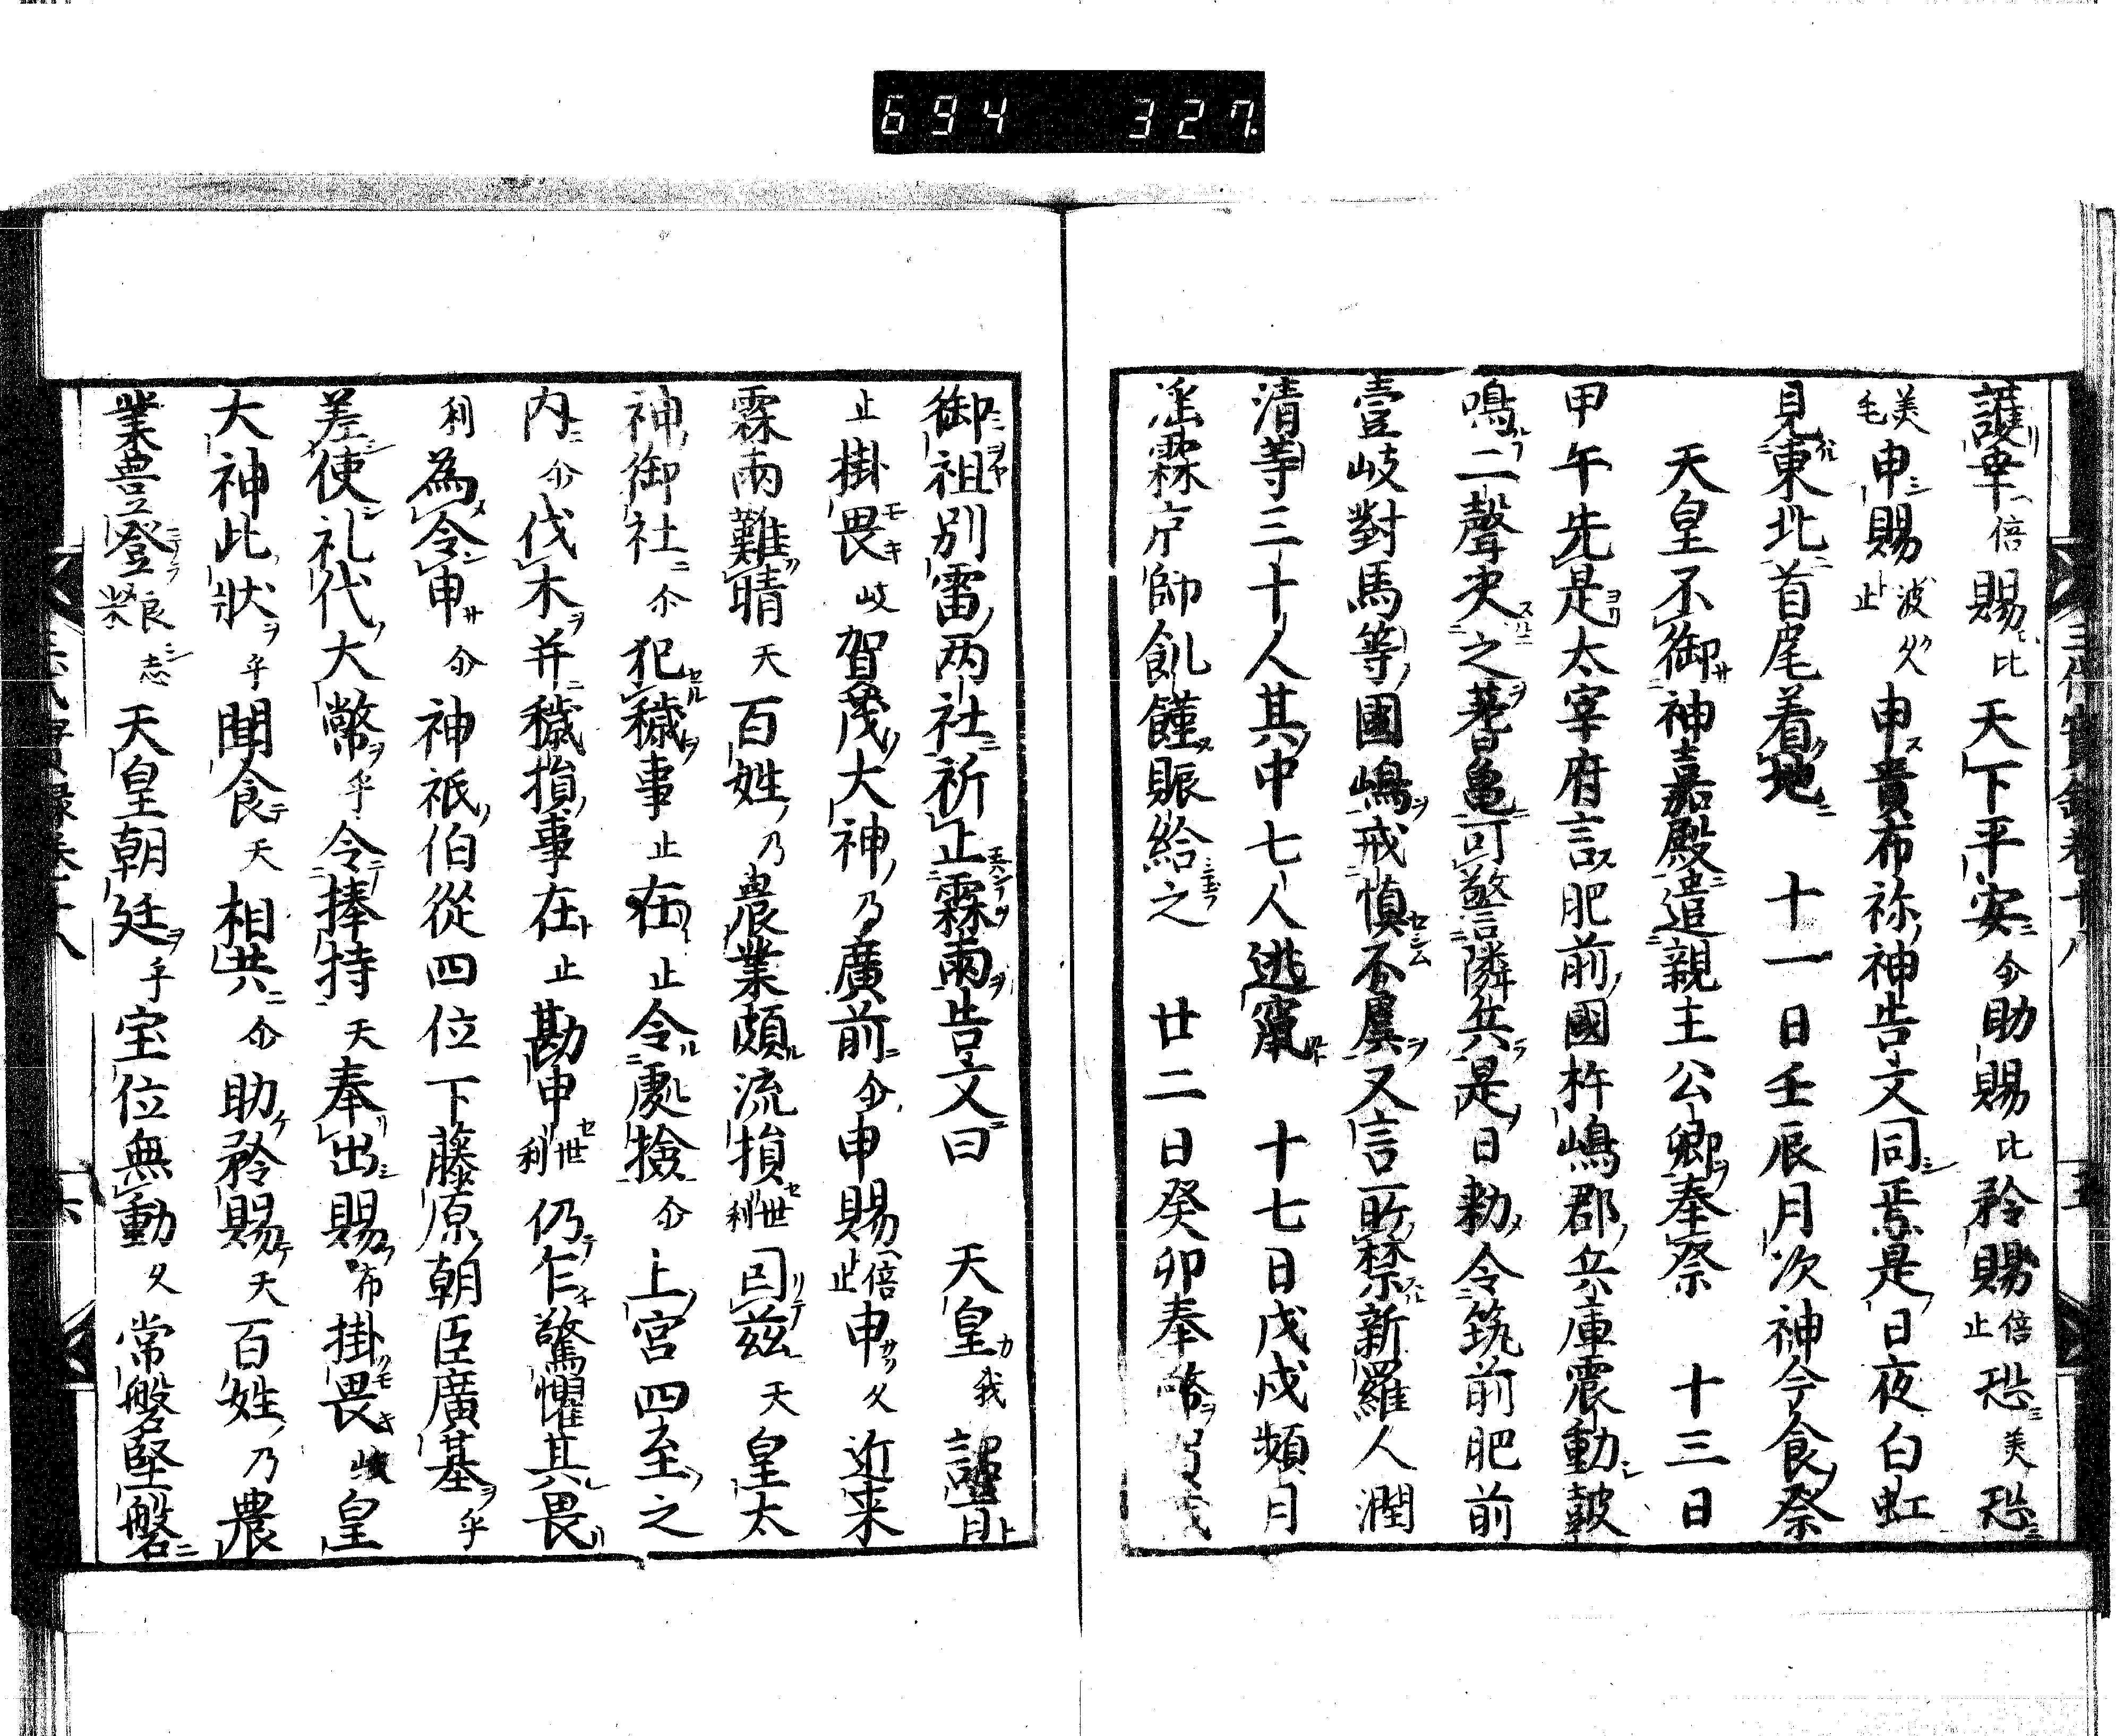 694 327
護幸倍賜比天下平安尒助賜比矜賜倍止恐美恐
美毛申賜波久止申久貴布祢神告文同焉是日夜白虹
見東北首尾着地 十一日壬辰月次神今食祭
天皇不御神嘉殿遣親王公卿奉祭 十三日
甲午先是太宰府言肥前國杵嶋郡兵庫震動皷
鳴二聲决之蓍龜可警隣兵是日勑令筑前肥前
壹岐對馬等國嶋戒慎不虞又言所禁新羅人潤
清等三十人其中七人逃竄 十七日戊戌頻月
淫霖京師飢饉賑給之 廿二日癸卯奉幣賀茂
御祖別雷两社祈止霖雨告文曰 天皇我詔旨
止掛畏岐賀茂大神乃廣前尒申賜倍止申久近来
霖雨難晴天百姓乃農業頗流損世利因茲天皇太
神御社尒犯穢事止在止令處撿尒上宮四至之
内尒伐木并穢損事在止勘申世利仍乍驚懼其畏
利為令申尒神祇伯從四位下藤原朝臣廣基乎
差使礼代大幣乎令捧持天奉出賜布掛畏岐皇
大神此狀乎聞食天相共尒助矜賜天百姓乃農
業豊登良志天皇朝廷乎宝位無動久常磐堅磐